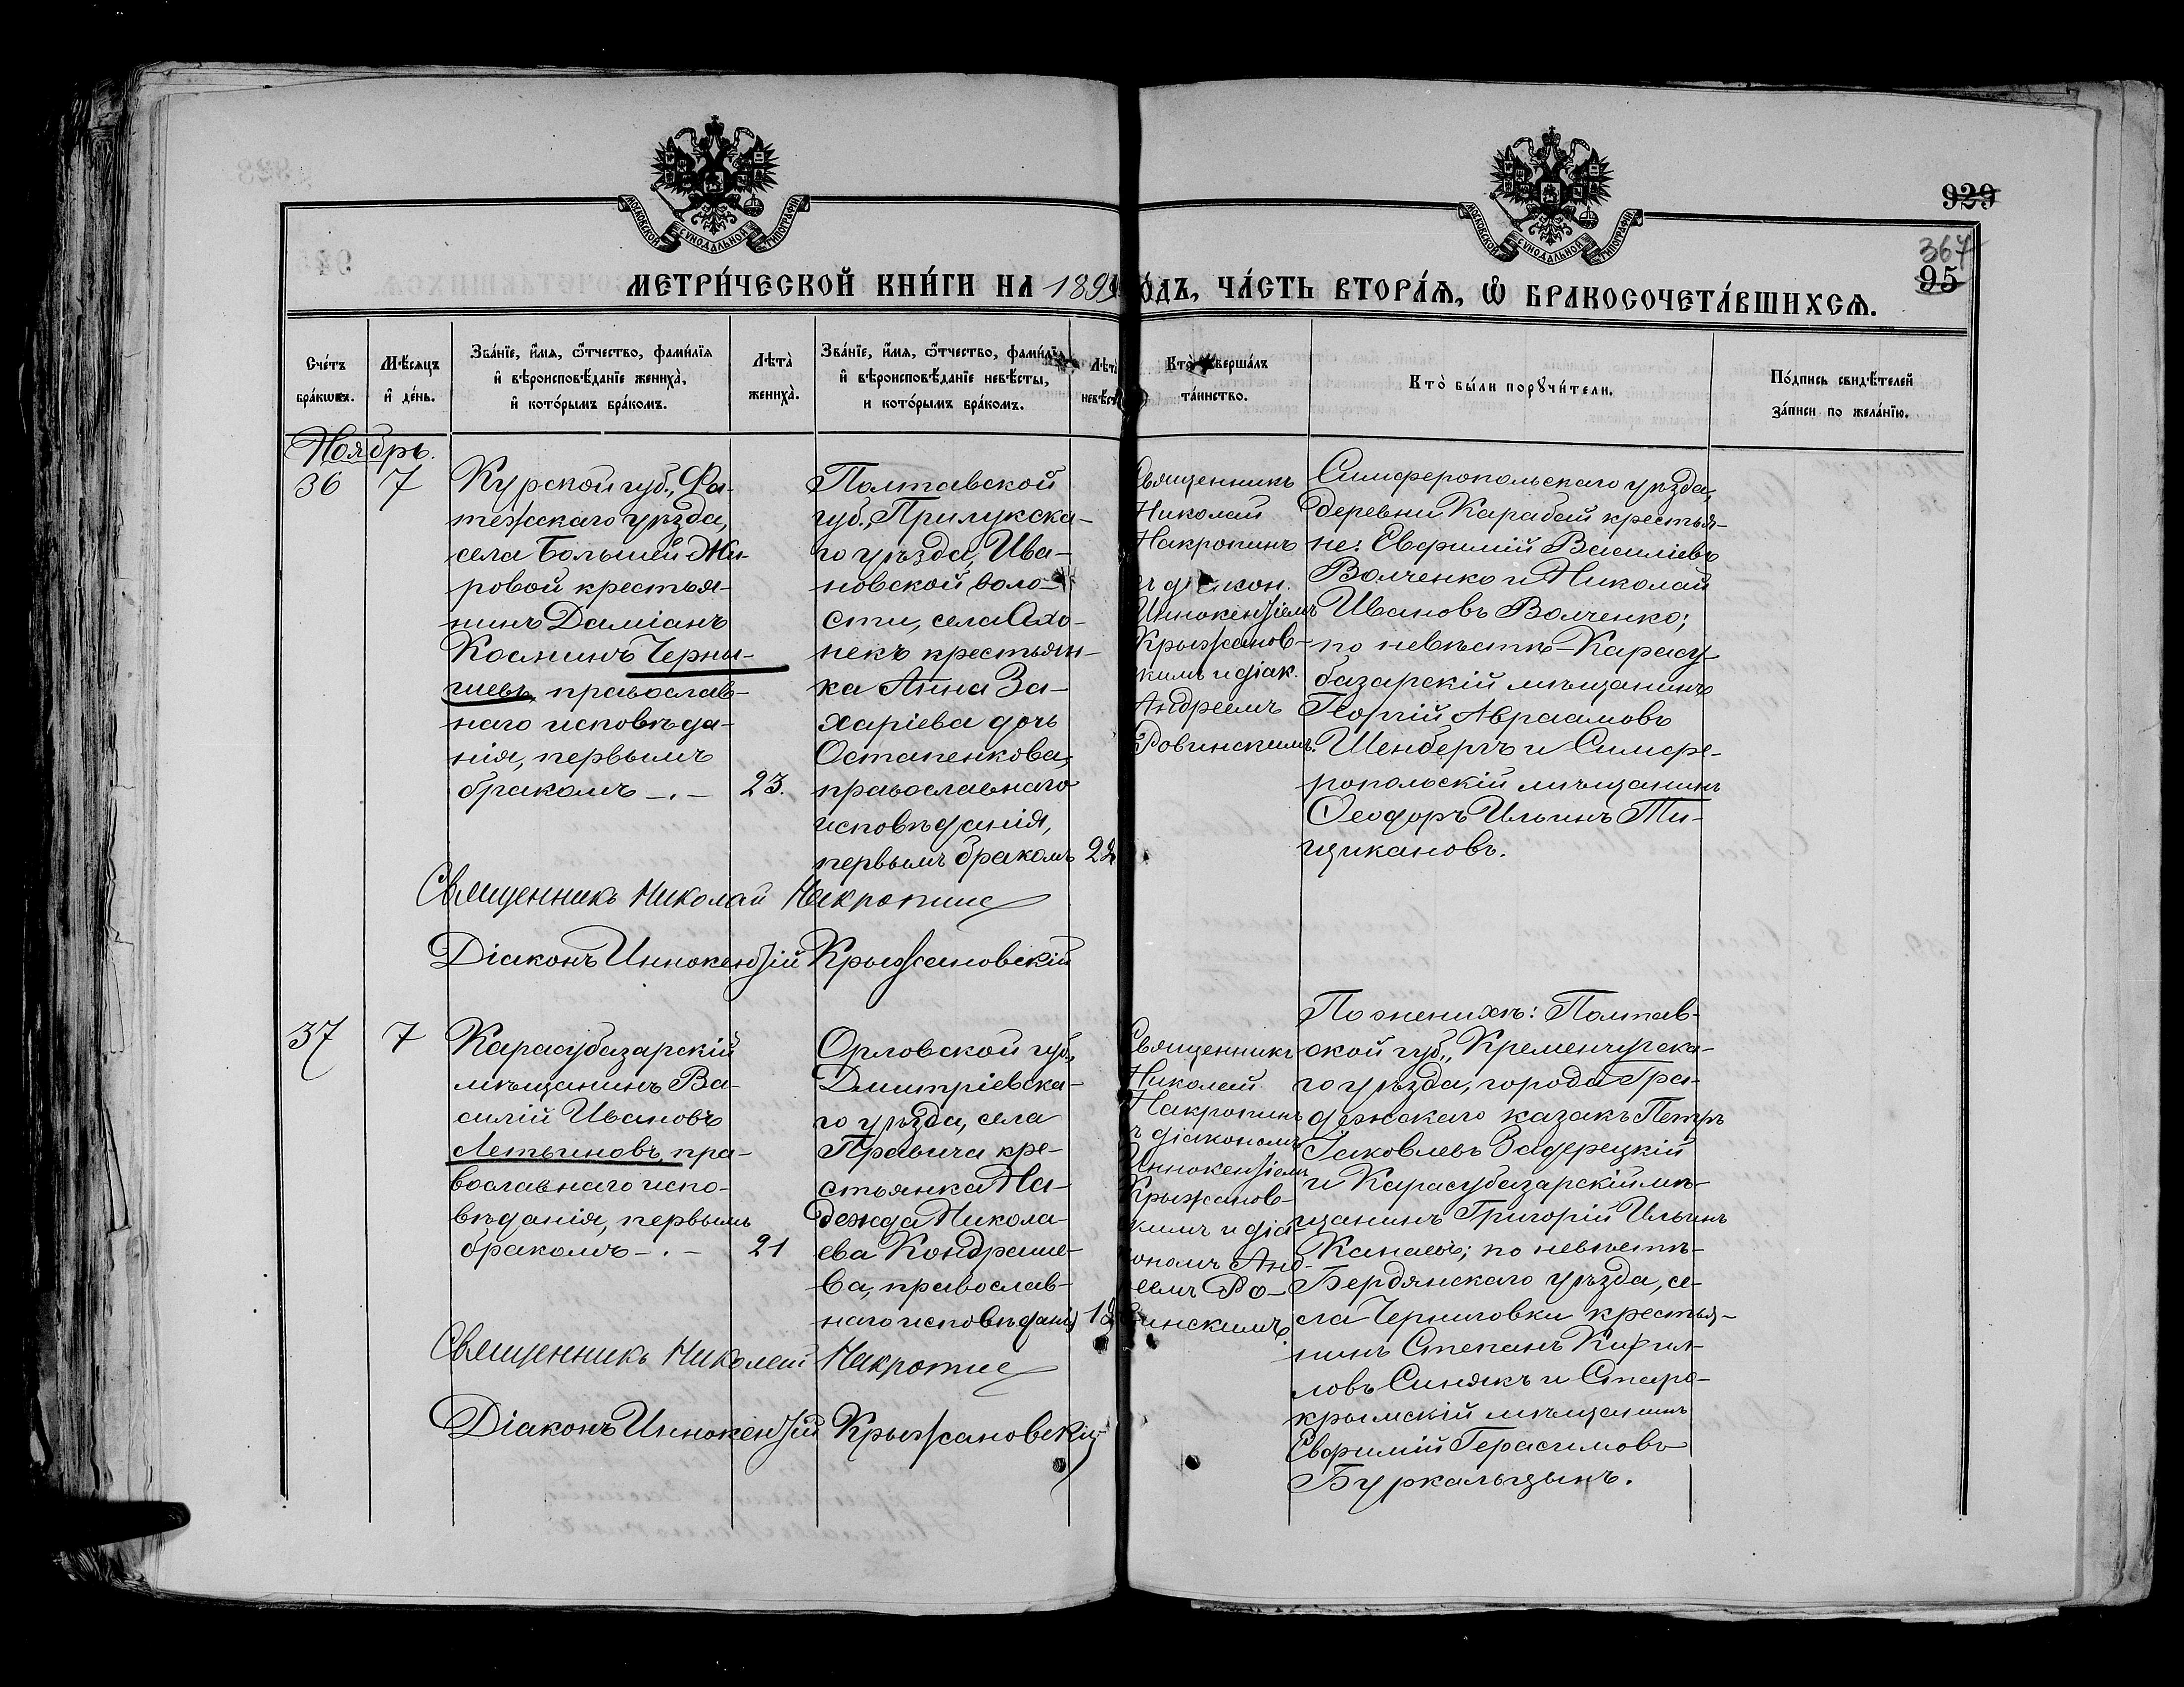 МОСКОВСКОЙ СѴНОДАЛЬНОЙ ТИПОГРАФІИ
МОСКОВСКОЙ СѴНОДАЛЬНОЙ ТИПОГРАФІИ
929
367
95
МЕТРИ́ЧЕСКОЙ КНИ́ГИ НА 1899 ГО́ДЪ, ЧА́СТЬ ВТОРА́Ѧ, Ѽ БРАКОСОЧЕТА́ВШИХСѦ.
Сче́тъ
бра́кѡвъ.
Мѣ́сѧцъ
и҆ де́нь.
Зва́нїе, и҆́мѧ, ѻ҆́тчество, фами́лїѧ
и҆ вѣроисповѣ́данїе жениха̀,
и҆ кото́рымъ бра́комъ.
Лѣта̀
жениха̀.
Зва́нїе, и҆́мѧ, ѻ҆́тчество, фами́лїѧ
и҆ вѣроисповѣ́данїе невѣ́сты,
и кото́рымъ бра́комъ.
Лѣта̀
невѣ́сты
Кто̀ соверша́лъ
та́инство.
Кто̀ бы́ли порꙋчи́тели.
По́дпись свидѣ́телей
за́писи по жела́нїю.
Ноябрь.
36
7
Курской губ., Фа-
тежскаго уѣзда,
села Большой Жи-
ровой крестья-
нинъ Даміанъ
Косминъ Черны-
шевъ, православ-
наго исповѣда-
нія, первымъ
бракомъ -.-
23.
Полтавской
губ., Прилукска-
го уѣзда, Ива-
новской воло-
сти, села
некъ крестьян-
ка Анна За-
харіева дочь
Остапенкова,
православнаго
исповѣданія,
первымъ бракомъ
Священникъ
Николай
Накропинъ
Иннокентіемъ
Крыжанов-
кимъ и діак.
Андреемъ
Ровинскимъ.
Симферопольскаго уѣзда,
деревни Карабай крестья-
не: Евфимій Василіевъ
Волченко и Николай
Ивановъ Волченко;
по невѣстѣ - Карасу-
базарскій мѣщанинъ
Георгій Авраамовъ
Шенбергъ и Симфе-
ропольскій мѣщанинъ
Ѳеодоръ Ильинъ Ти-
щикановъ.
Священникъ Николай Накропинъ
Діаконъ Иннокентій Крыжановскій
37
7
Карасубазарскій
мѣщанинъ Ва-
силій Ивановъ
Летягиновъ, пра-
вославнаго испо-
вѣданія, первымъ
бракомъ -.-
21
Орловской губ.,
Дмитріевска-
го уѣзда, села
Правича кре-
стьянка На-
дежда Никола-
ева Кондраше-
ва, православ-
наго исповѣданія
Священникъ
Николай
Накропинъ
діакономъ
Иннокентіемъ
Крыжанов-
кимъ и діа-
кономъ Анд-
реемъ Ро-
винскимъ
По женихѣ: Полтав-
ской губ., Кременчугска-
го уѣзда, города Гра-
дежскаго казакъ Петръ
Іаковлевъ Задерецкій
и Карасубазарскій мѣ-
щанинъ Григорій Ильинъ
Канаевъ; по невѣстѣ -
Бердянскаго уѣзда, се-
ла Черниговки крестья-
нинъ Степанъ Кирил-
ловъ Синякъ и Старо-
крымскій мѣщанинъ
Евфимій Герасимовъ
Буркальцынъ.
Священникъ Николай Накропинъ
Діаконъ Иннокентій Крыжановскій